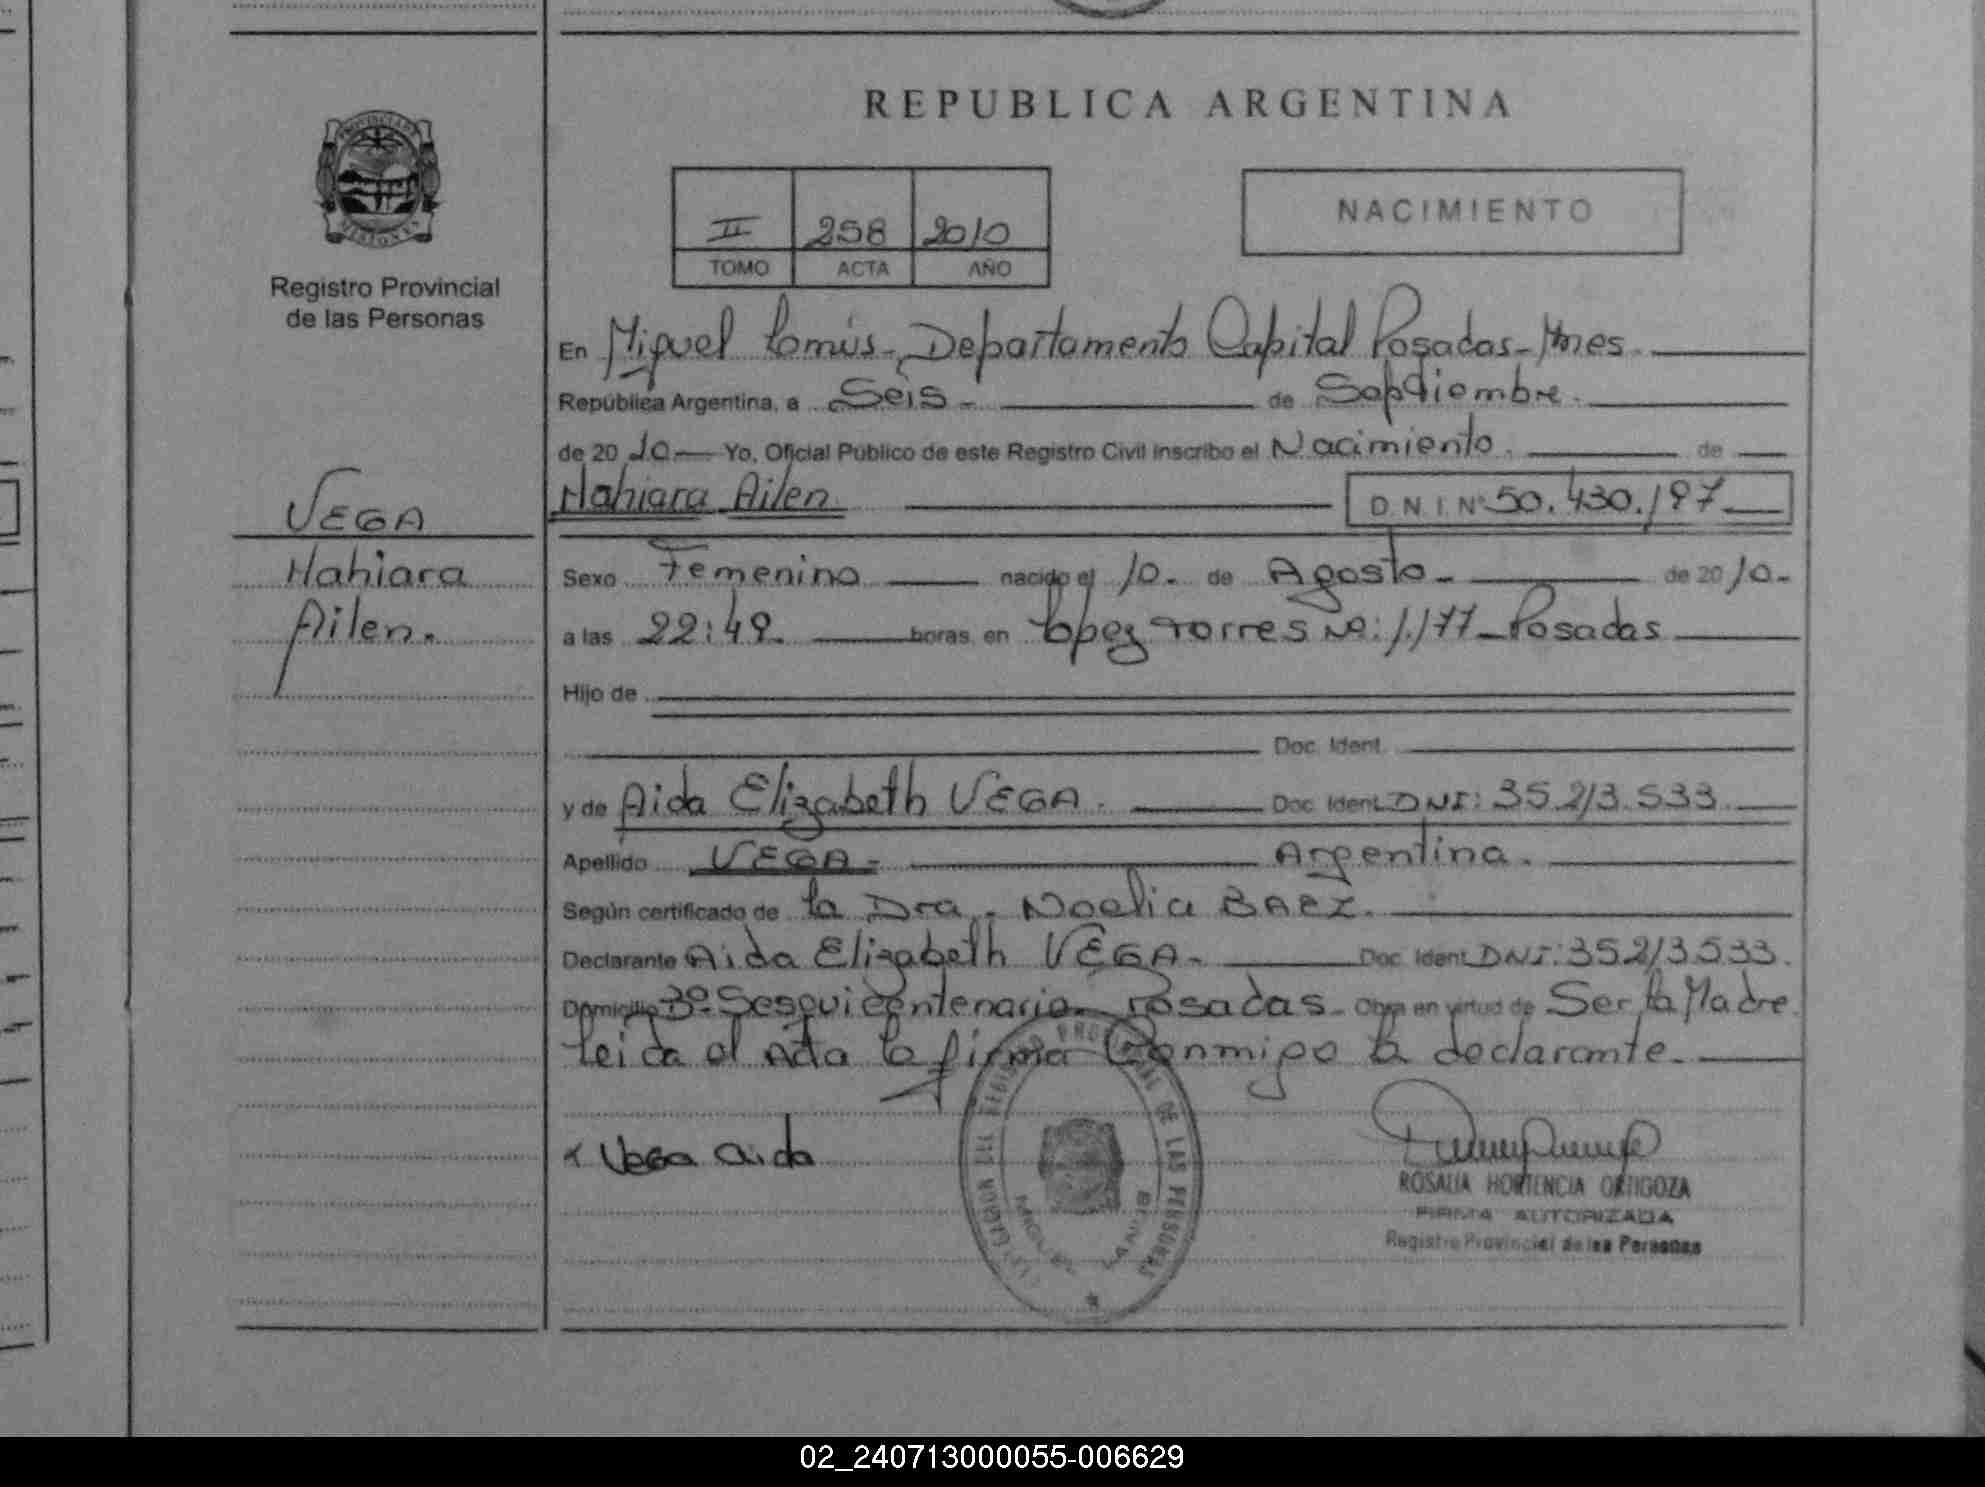 REPUBLICA ARGENTINA
PROVINCIA DE
MISIONES
Registro Provincial
de las Personas
II 258 2010
TOMO ACTA AÑO
NACIMIENTO
VEGA
Mahiara
Ailen.
En Miguel Lanús-Departamento Capital Posadas-Mnes.
República Argentina, a Seis- de Septiembre.
de 20 10 Yo, Oficial Público de este Registro Civil inscribo el Nacimiento. de
Mahiara Ailen. D.N.I. Nº 50.430.197
Sexo Femenino nacido el 10. de Agosto- de 20 10-
a las 22:49. horas, en López Torres Nº: 1.177-Posadas
Hijo de
Doc. Ident.
y de Aida Elizabeth VEGA. Doc. Ident. DNI: 35.213.533.
Apellido VEGA- Argentina.
Según certificado de la Dra. Noelia BAEZ.
Declarante Aida Elizabeth VEGA- Doc. Ident. DNI: 35.213.533.
Domicilio Bº Sesquicentenario- Posadas- Obra en virtud de Ser la Madre.
Leida el Acta la firma Conmigo la declarante.
x Vega Aida
REGISTRO PROVINCIAL DE LAS PERSONAS
DELEGACION
MIGUEL LANUS
ROSALIA HORTENCIA ORTIGOZA
FIRMA AUTORIZADA
Registro Provincial de las Personas
02_240713000055-006629